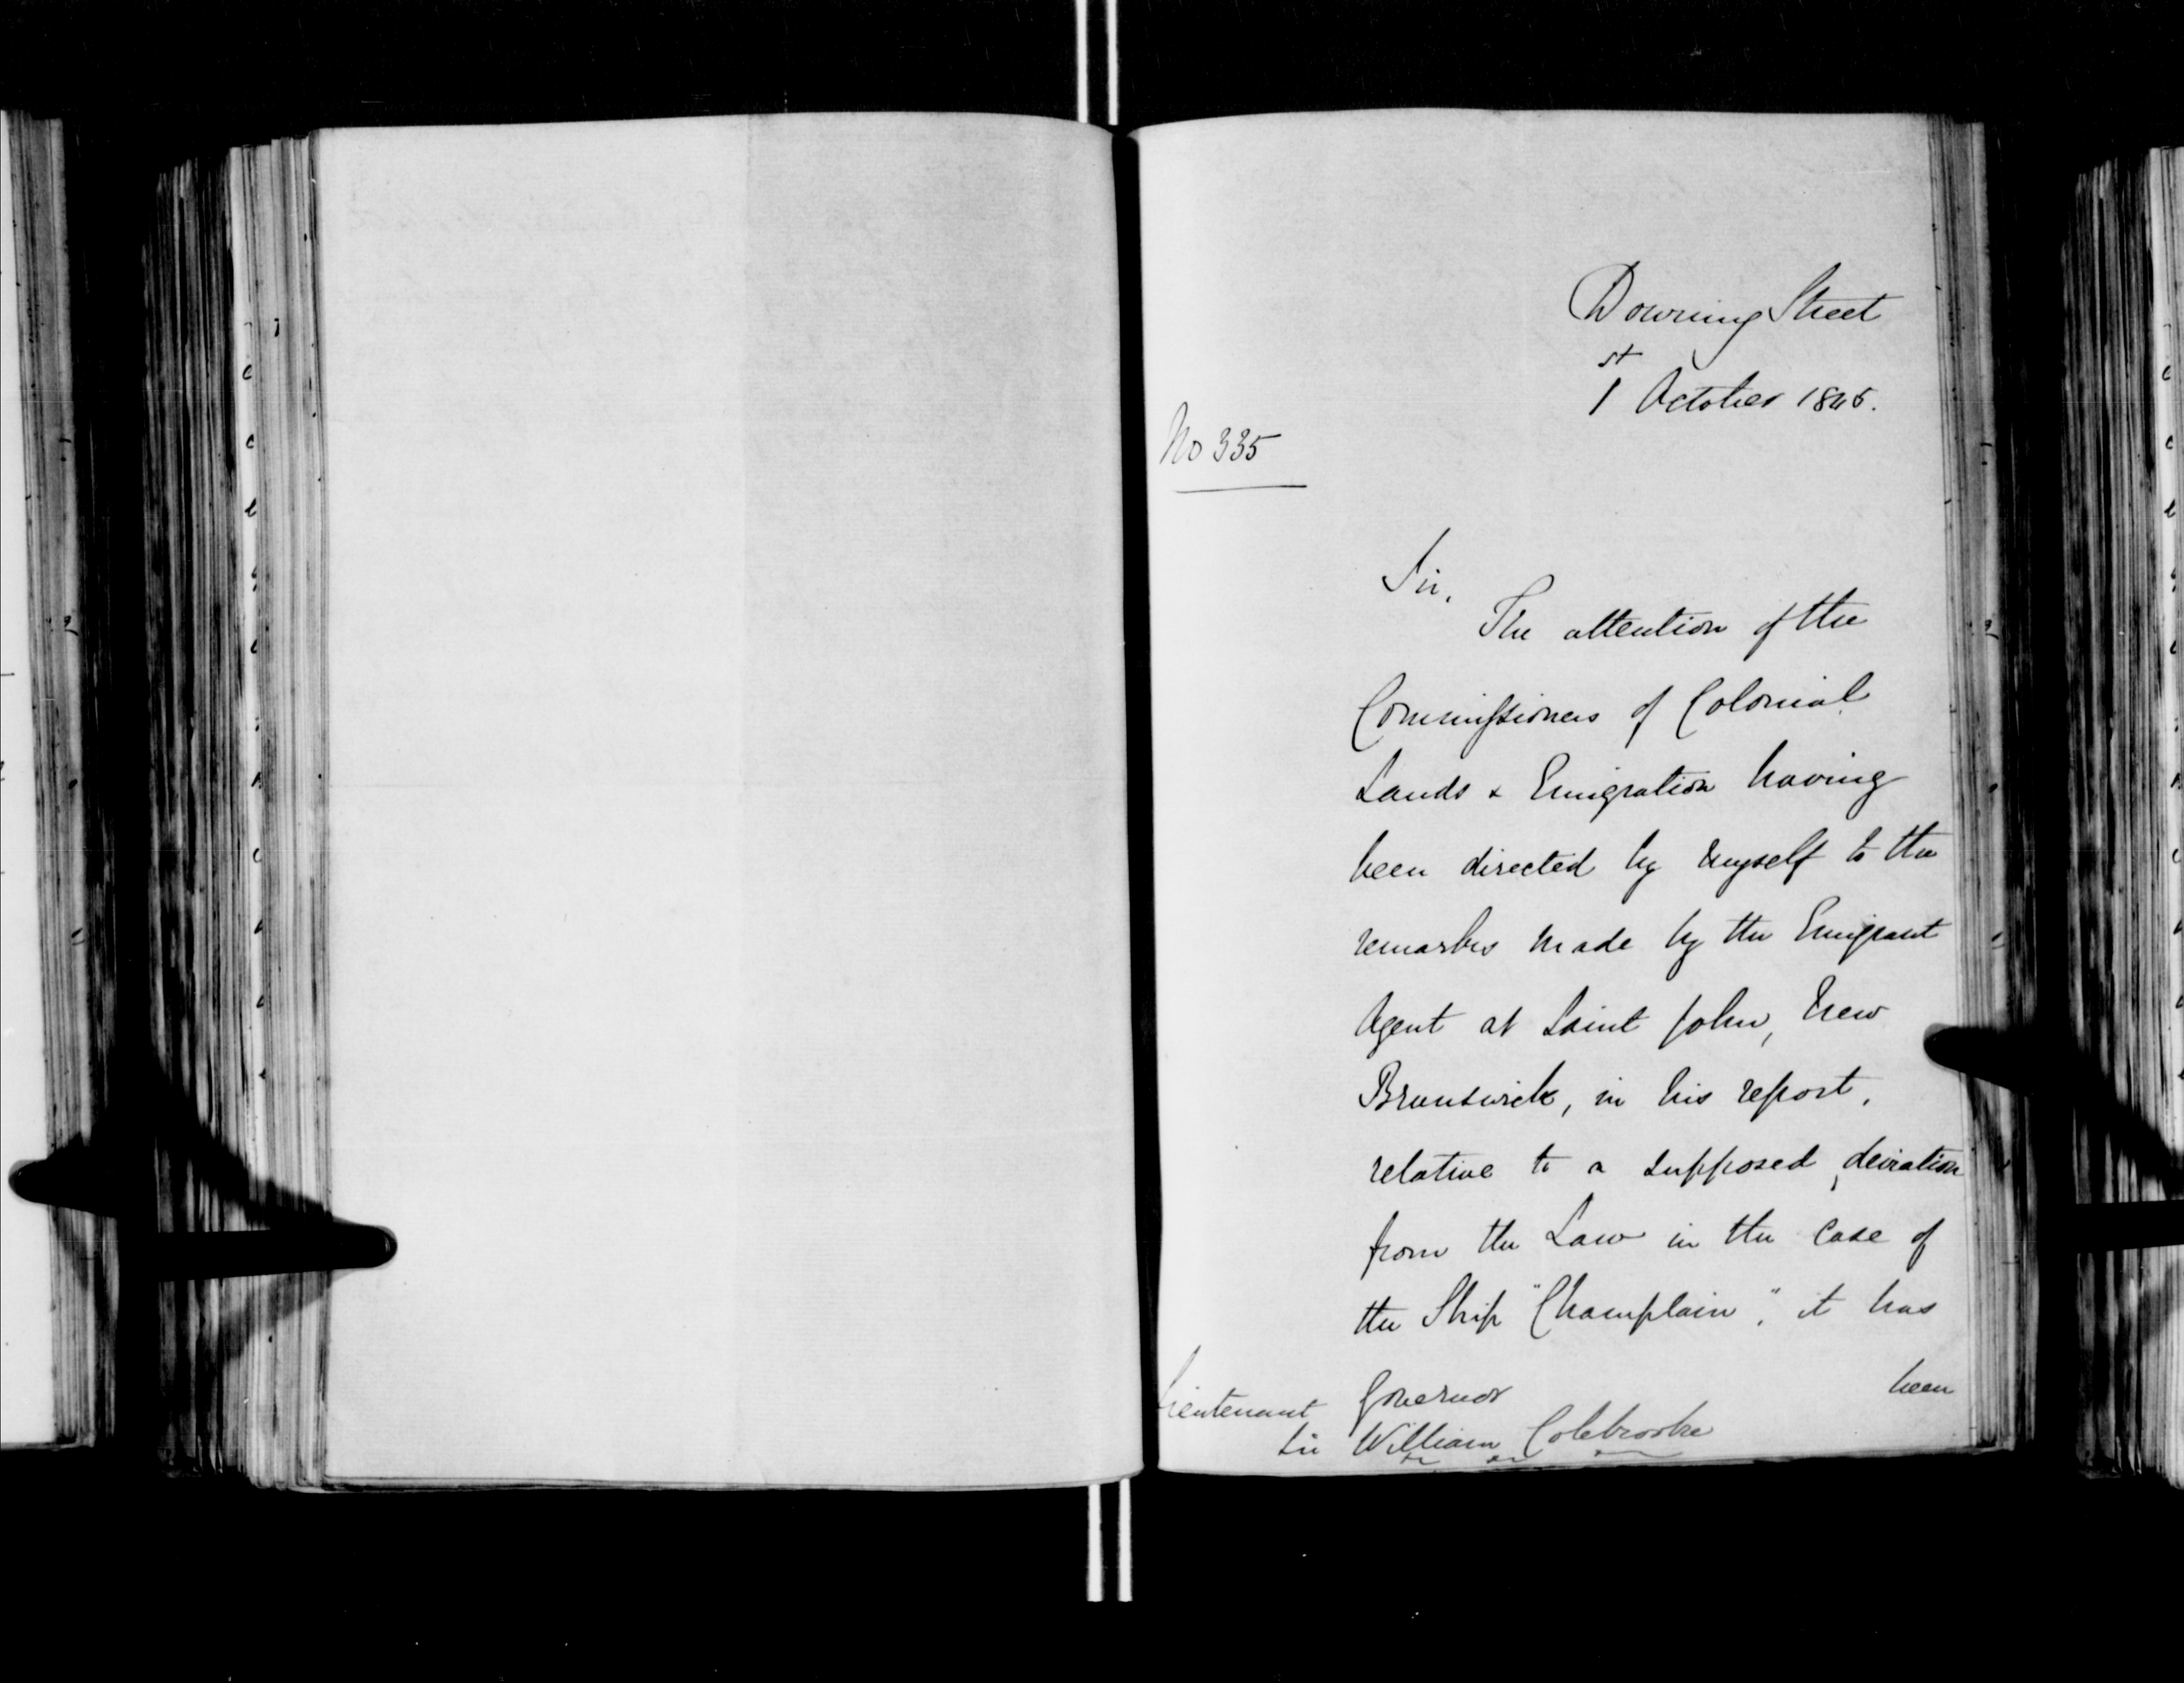 Downing Street
1st October 1845.
No 335
Sir,
The attention of the
Commissioners of Colonial
Lands & Emigration having
been directed by myself to the
remarks made by the Emigrant
Agent at Saint John, New
Brunswick, in his report,
relative to a supposed deviation
from the Law in the case of
the Ship "Champlain", it has
been
Lieutenant Governor
Sir William Colebrooke